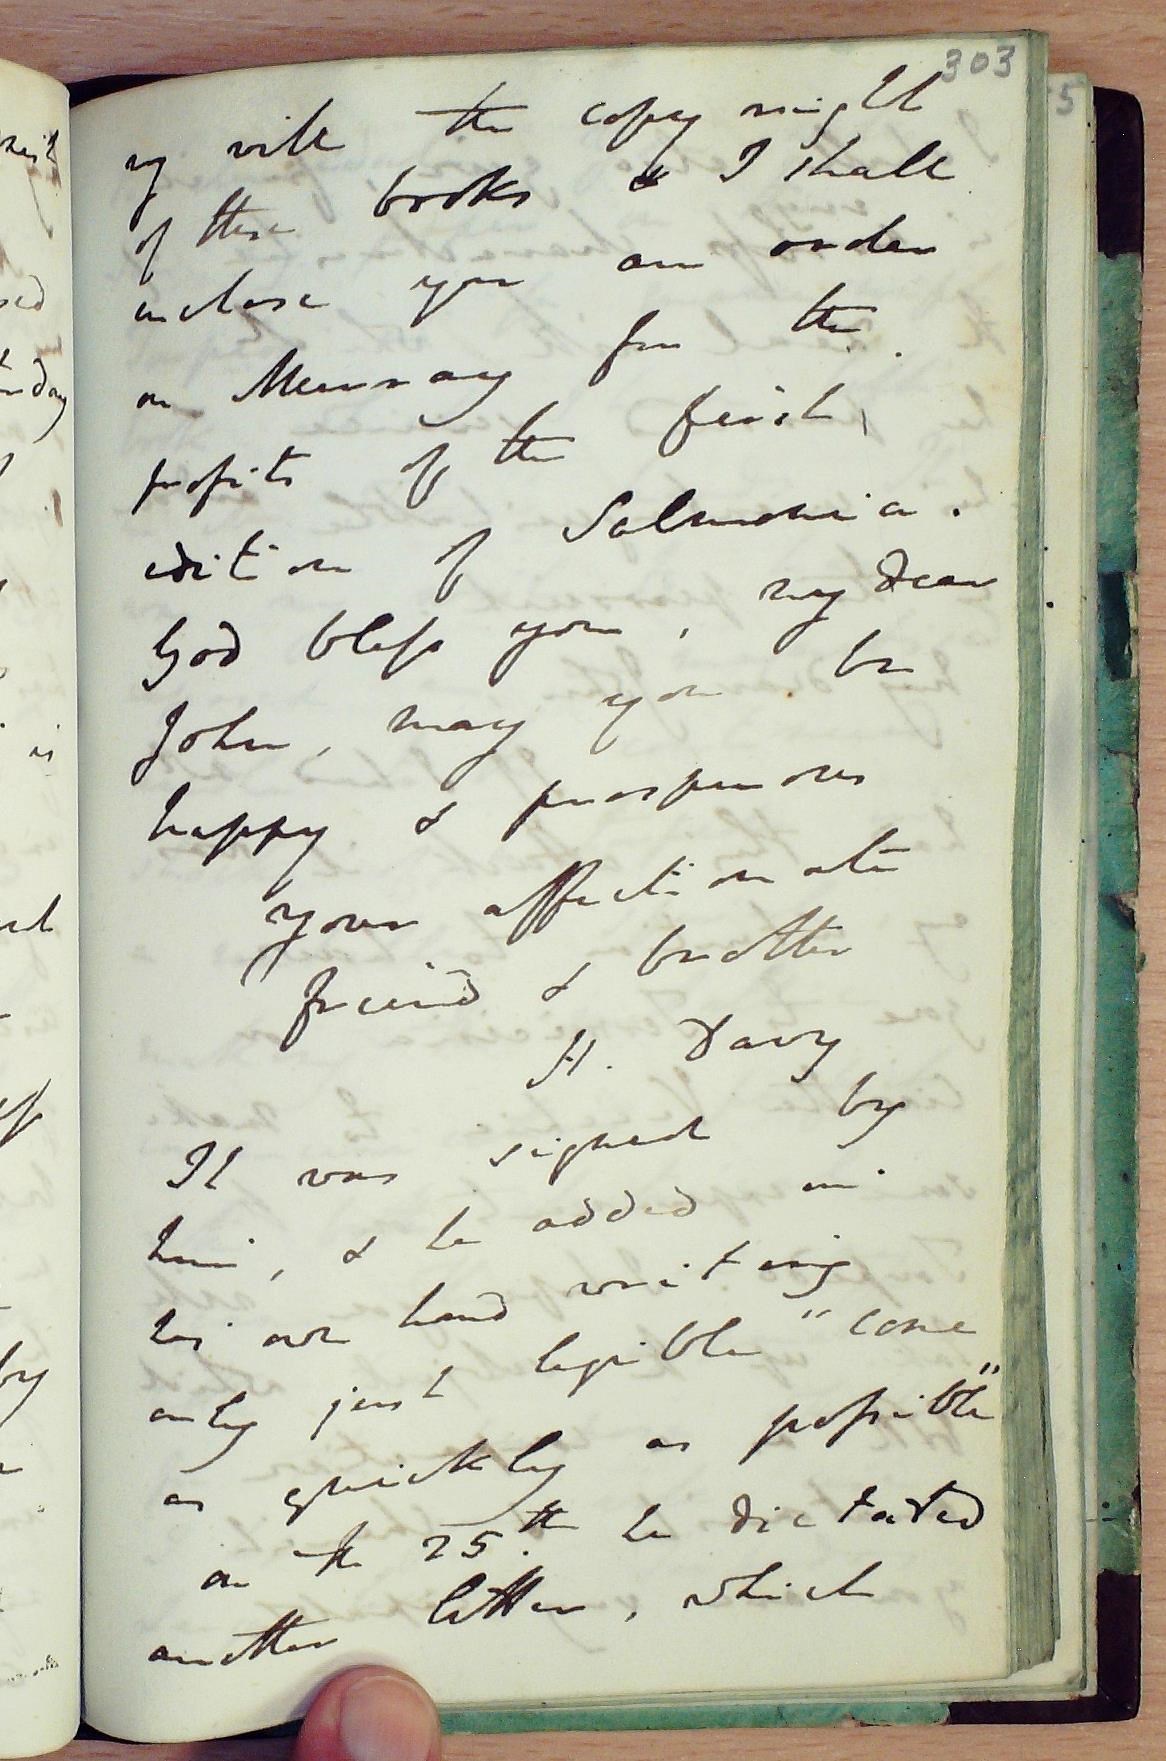 303
ry with the copy right
of these books & I shall
inclose you an order
on Murray for the
profits of the first
edition of Salmonia.
God bless you, my dear
John, may you be
happy & prosperous
your affectionate
friend & brother
H. Davy
It was signed by
him, & he added in
his own hand writing
only just legible "come
as quickly as possible"
on the 25.th he dictated
another letter, which